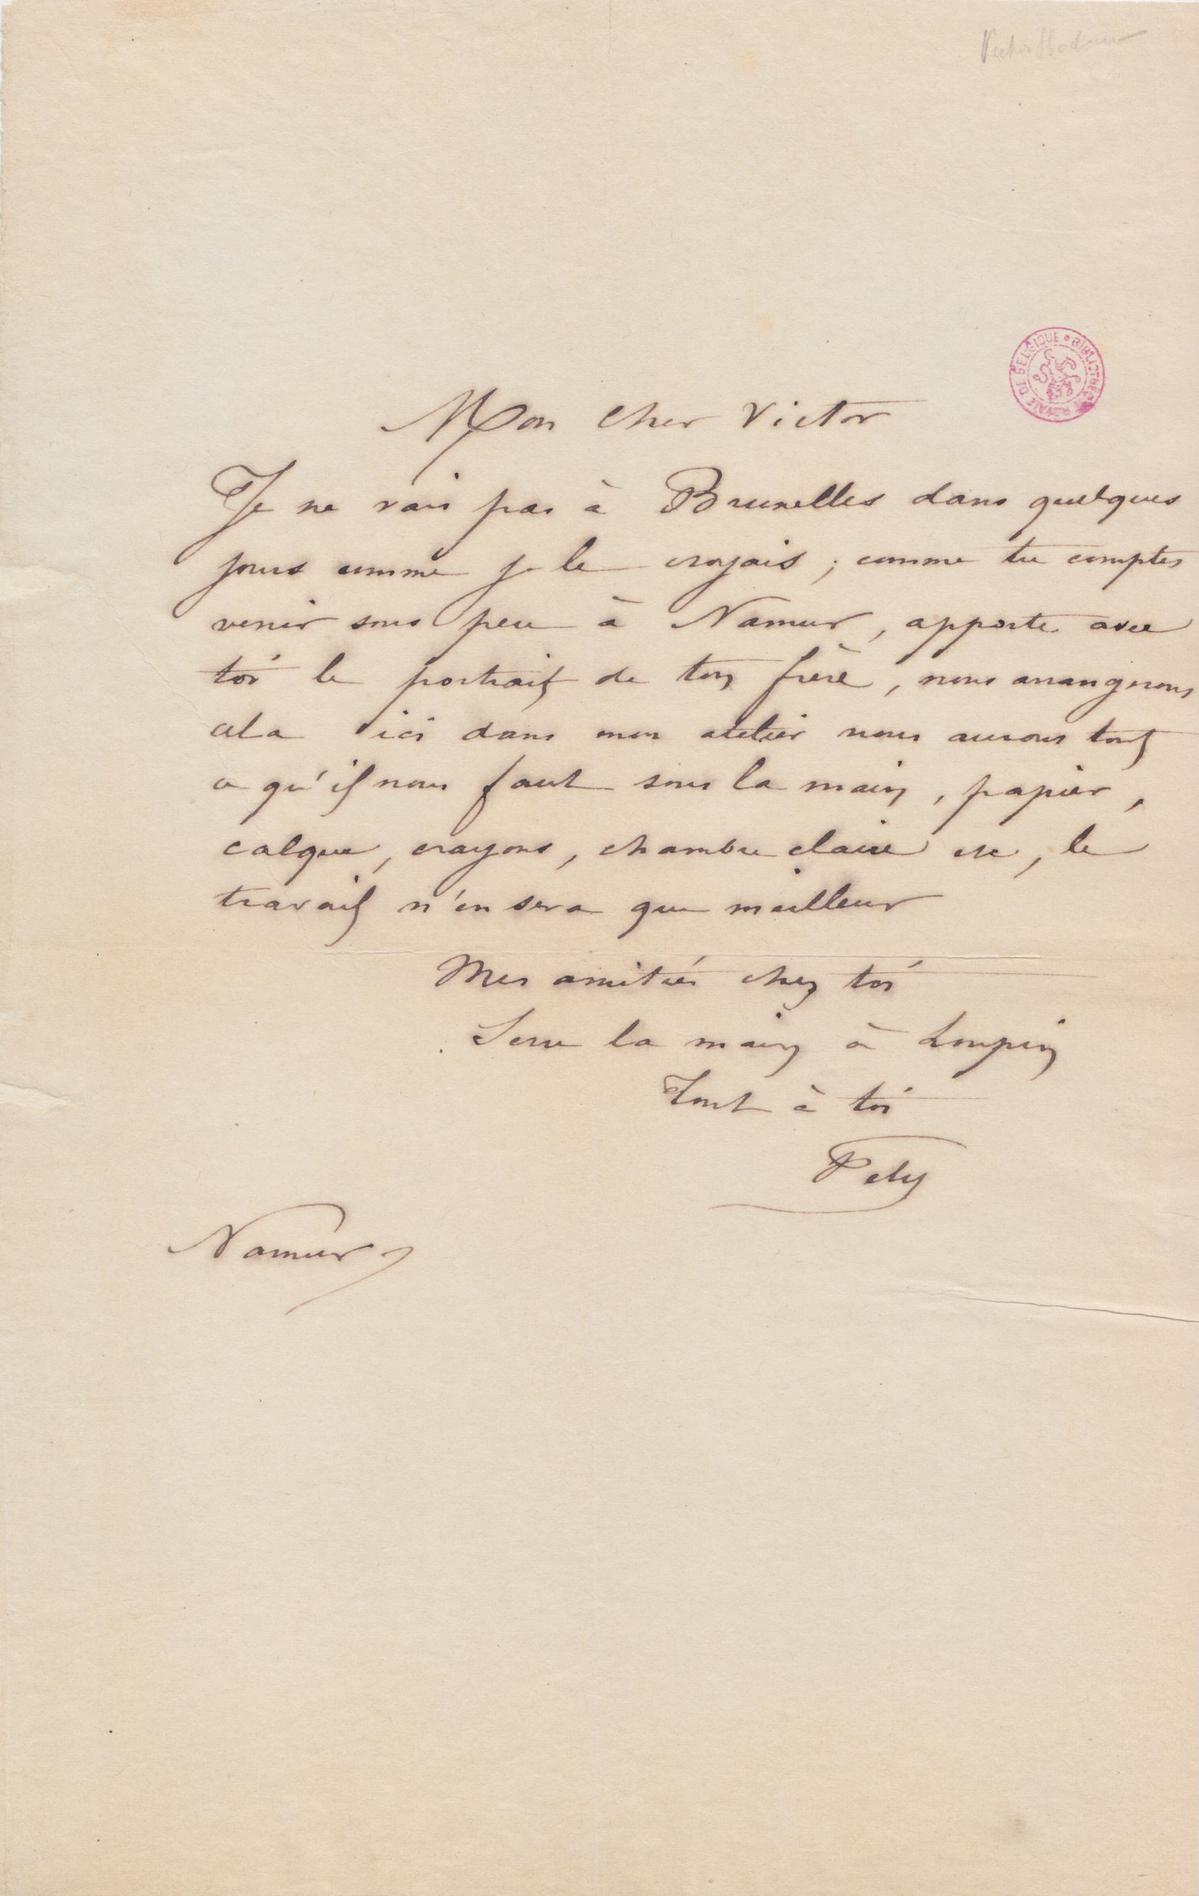 Victor Hodeur
BIBLIOTHÈQUE ROYALE DE BELGIQUE
Mon cher Victor
Je ne vais pas à Bruxelles dans quelques
jours comme je le croyais ; comme tu comptes
venir sous peu à Namur, apporte avec
toi le portrait de ton frère, nous arrangerons
cela ici dans mon atelier nous aurons tout
ce qu'il nous faut sous la main, papier,
calque, crayons, chambre claire etc, le
travail n'en sera que meilleur
Mes amitiés chez toi
Serre la main à
Tout à toi
Fély
Namur